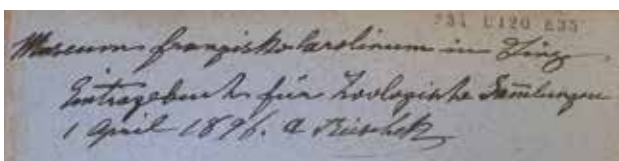 Museum franziskokarolinum in Linz
Eintragebuch für Zoologische Sam̅lungen
1 April 1896. A Reischek